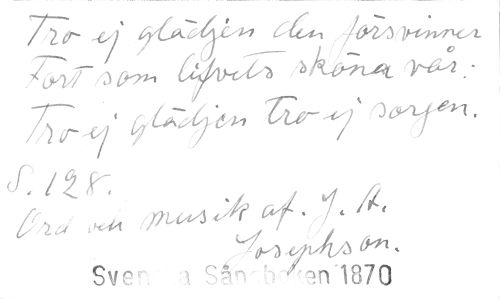 Tro ej glädjen den försvinner
Fort som lifvets sköna vår.
Tro ej glädjen tro ej sorgen.
S. 128.
Ord och musik af. J. A.
Josephson.
Svenska Sångboken 1870